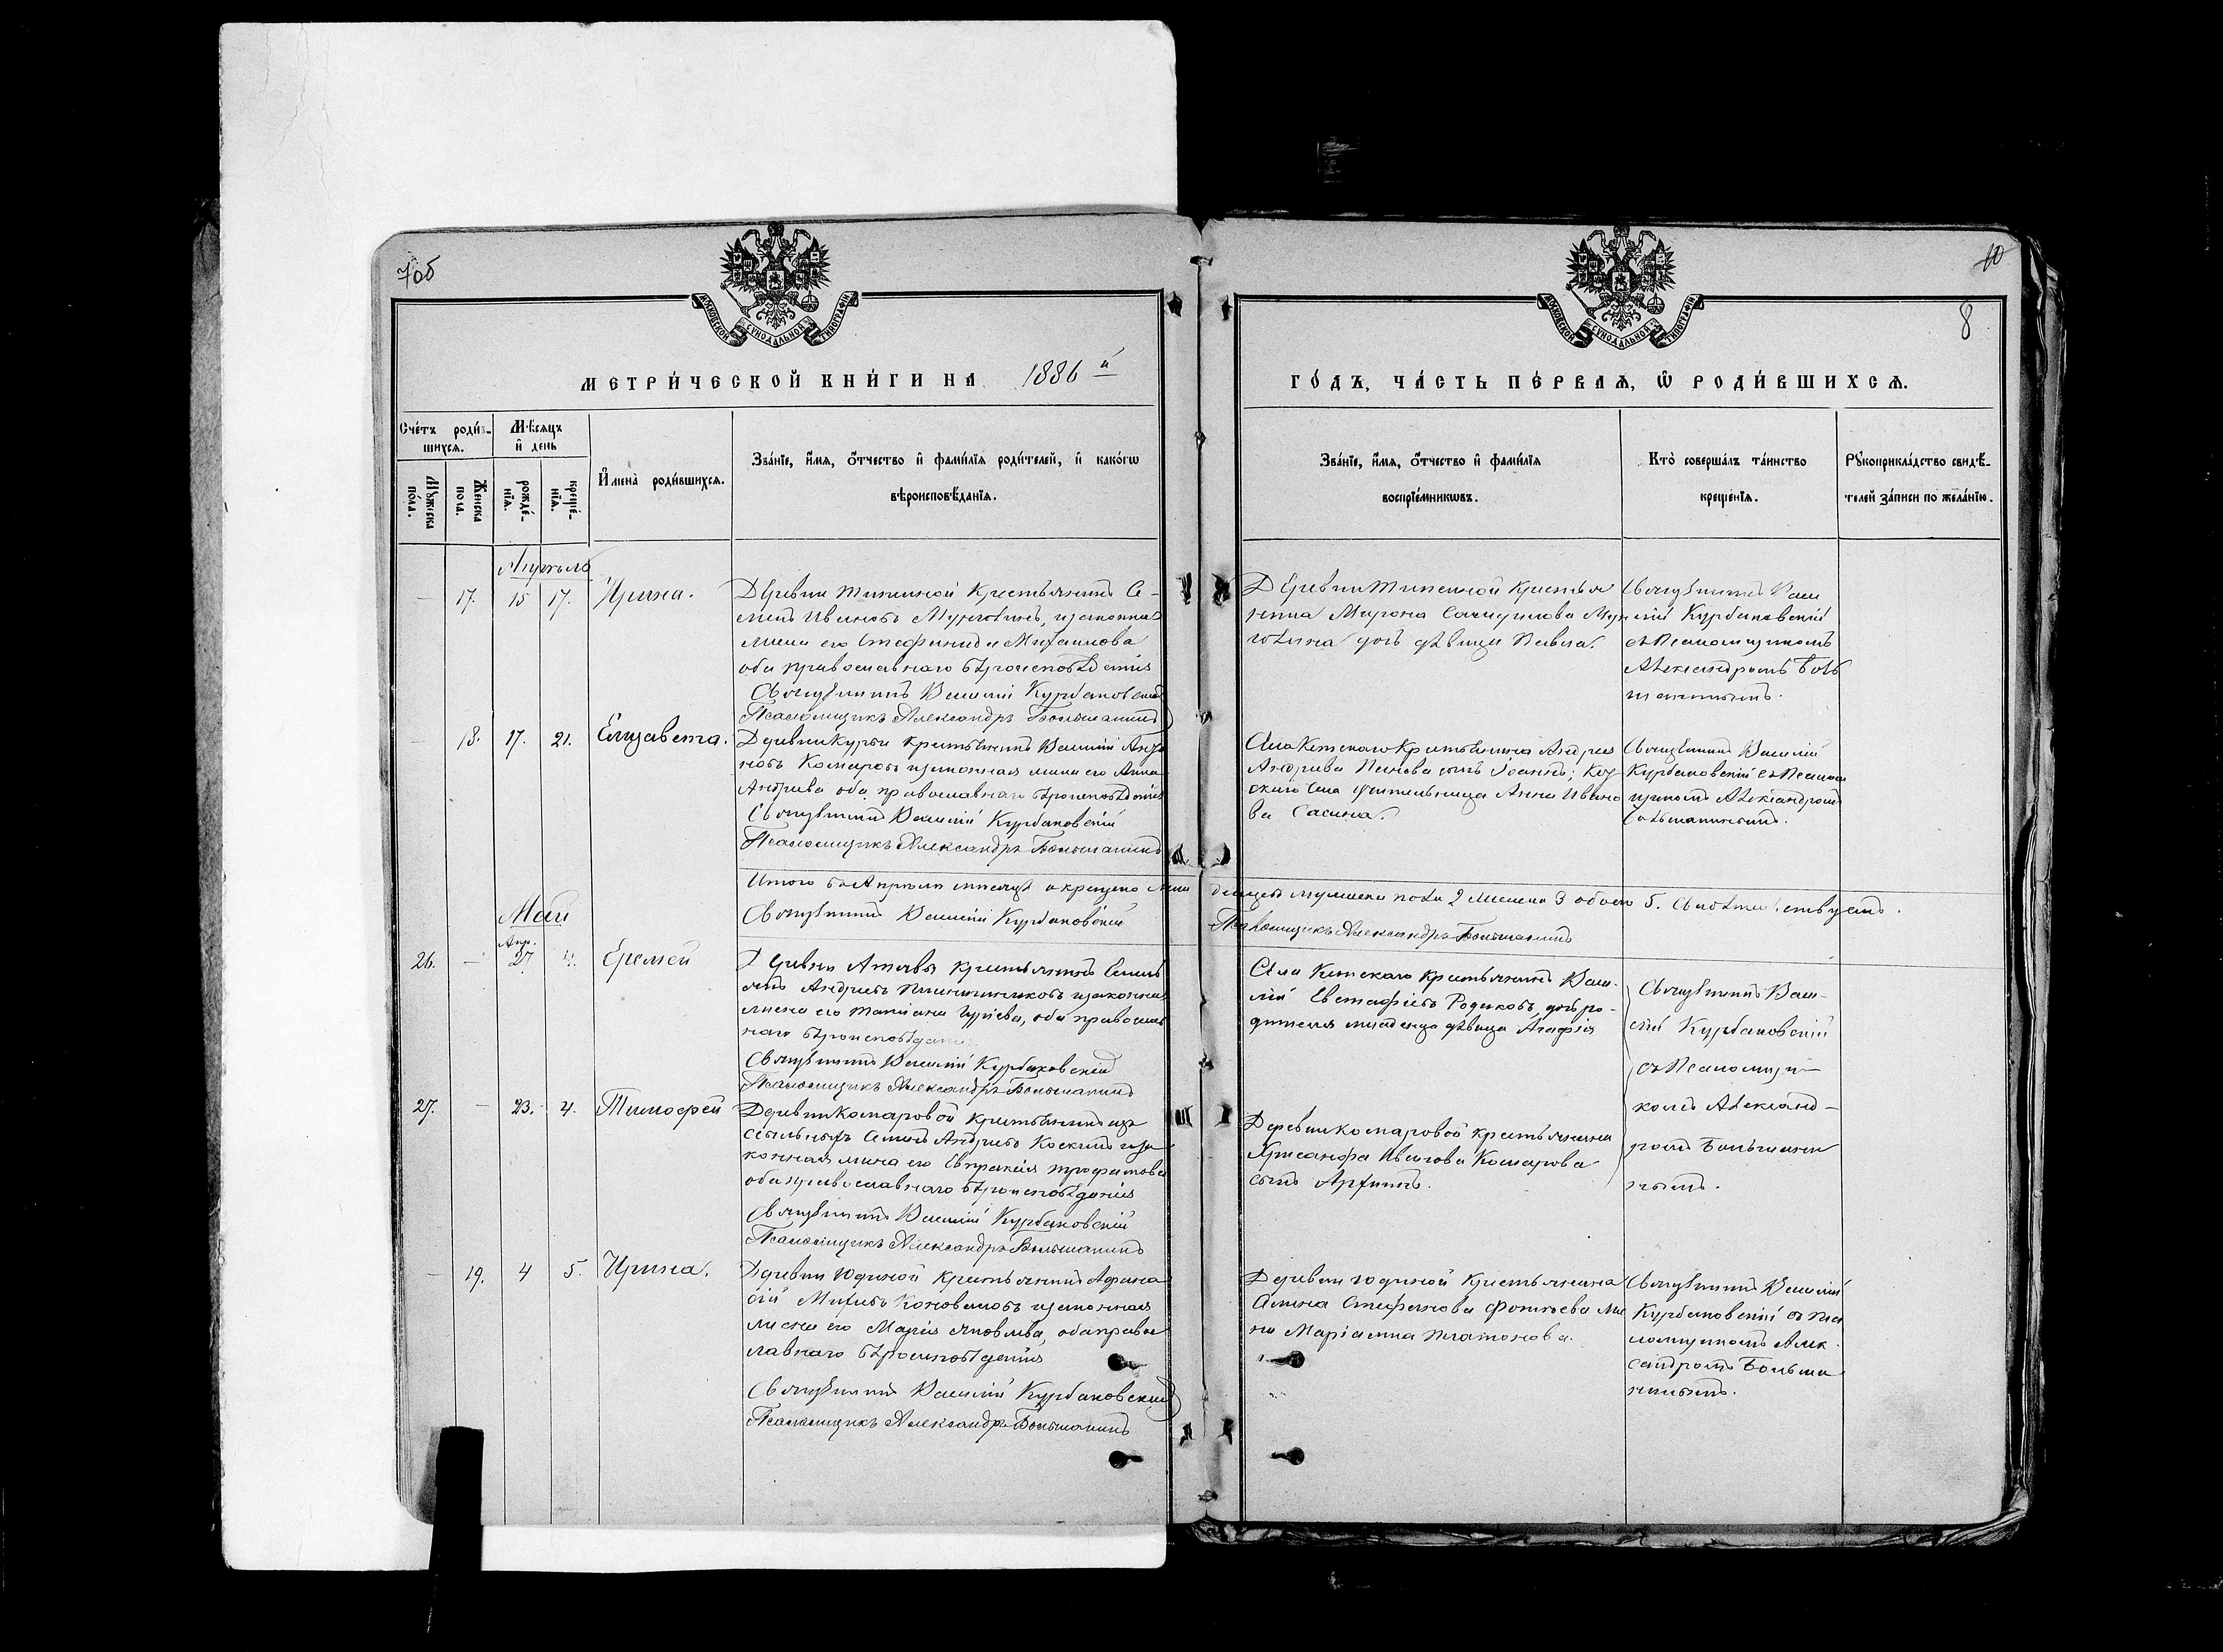 7об
10
8
МОСКОВСКОЙ СѴНОДАЛЬНОЙ ТИПОГРАФІИ
МОСКОВСКОЙ СѴНОДАЛЬНОЙ ТИПОГРАФІИ
МЕТРИ́ЧЕСКОЙ КНИ́ГИ НА 1886й
ГО́ДЪ, ЧА́СТЬ ПЕ́РВАѦ, Ѡ РОДИ́ВШИХСѦ.
Сче́тъ роди́в-
шихсѧ.
Мѣсѧцъ
и҆ день
Мꙋжеска
пола.
Женска
пола.
рожде́-
нїѧ.
креще́-
нїѧ.
И҆мена̀ роди́вшихсѧ.
Зва́нїе, и҆́мѧ, ѻ҆́тчество и҆ фами́лїѧ роди́телей, и҆ како́гѡ
вѣроисповѣ́данїѧ.
Зва́нїе, и҆́мѧ, ѻ҆́тчество и҆ фами́лїѧ
воспрїе́мникѡвъ.
Кто̀ соверша́лъ та́инство
креще́нїѧ.
Рꙋкоприкла́дство свидѣ́-
телей за́писи по жела́нїю.
Апрѣль
— 17. 15 17. Ирина.
Деревни Типсиной крестьянинъ Се-
менъ Ивановъ Мунговинъ, и законная
жена его Стефанида Михаилова
оба православнаго вѣроисповѣданія
Священникъ Василій Курбановскій
Псаломщикъ Александръ Большанинъ
Деревни Типсиной крестья
нина Мирона
дочь дѣвица
Священникъ Васи
лій Курбановскій
съ Псаломщикомъ
Александромъ Боль
шанинымъ.
— 18. 17. 21. Елизавета.
Деревни Курьи крестьянинъ Василій
Комаровъ и законная жена его Анна
Андреева оба православнаго вѣроисповѣданія
Священникъ Василій Курбановскій
Псаломщикъ Александръ Большанинъ
Села Кетскаго крестьянина Андрея
Андреева Панова сынъ Іоаннъ;
скаго села учительница Анна Ивано
ва Сасина.
Священникъ Василій
Курбановскій съ Псалом
щикомъ Александромъ
Большанинымъ.
Итого въ Апрѣлѣ мѣсяцѣ окрещено мла
денцевъ мужеска пола 2 женска 3 обоего 5. Свидѣтельствуетъ.
Священникъ Василій Курбановскій
Псаломщикъ Александръ Большанинъ
Май
Апр.
26. — 27 4. Еремей
Деревни крестьянинъ Емель
янъ Андреевъ и законная
жена его Татіана Гурьева, оба православ
наго вѣроисповѣданія
Священникъ Василій Курбановскій
Псаломщикъ Александръ Большанинъ
Села Кетскаго крестьянинъ Васи-
лій Евстафіевъ Родиковъ, дочь ро-
дителя младенца дѣвица Агафія
Священникъ Васи-
лій Курбановскій
съ Псаломщи-
комъ Александ-
ромъ Большани
нымъ.
27. — 23. 4. Тимофей
Деревни Комаровой крестьянинъ изъ
ссыльныхъ Семенъ Андреевъ Коскинъ и за
конная жена его Евпраксія Трофимова
оба православнаго вѣроисповѣданія
Священникъ Василій Курбановскій
Псаломщикъ Александръ Большанинъ
Деревни Комаровой крестьянина
Хрисанфа Иванова Комарова
сынъ
— 19. 4 5. Ирина.
Деревни Юдиной крестьянинъ Афана
сій Михеевъ Коноваловъ и законная
жена его Марія Яковлева, оба правос
лавнаго вѣроисповѣданія
Священникъ Василій Курбановскій
Псаломщикъ Александръ Большанинъ
Деревни Юдиной крестьянина
Стефанова Фотьева же
на Маріамна Платонова.
Священникъ Василій
Курбановскій съ Пса
ломщикомъ Алек
сандромъ Больша
нинымъ.